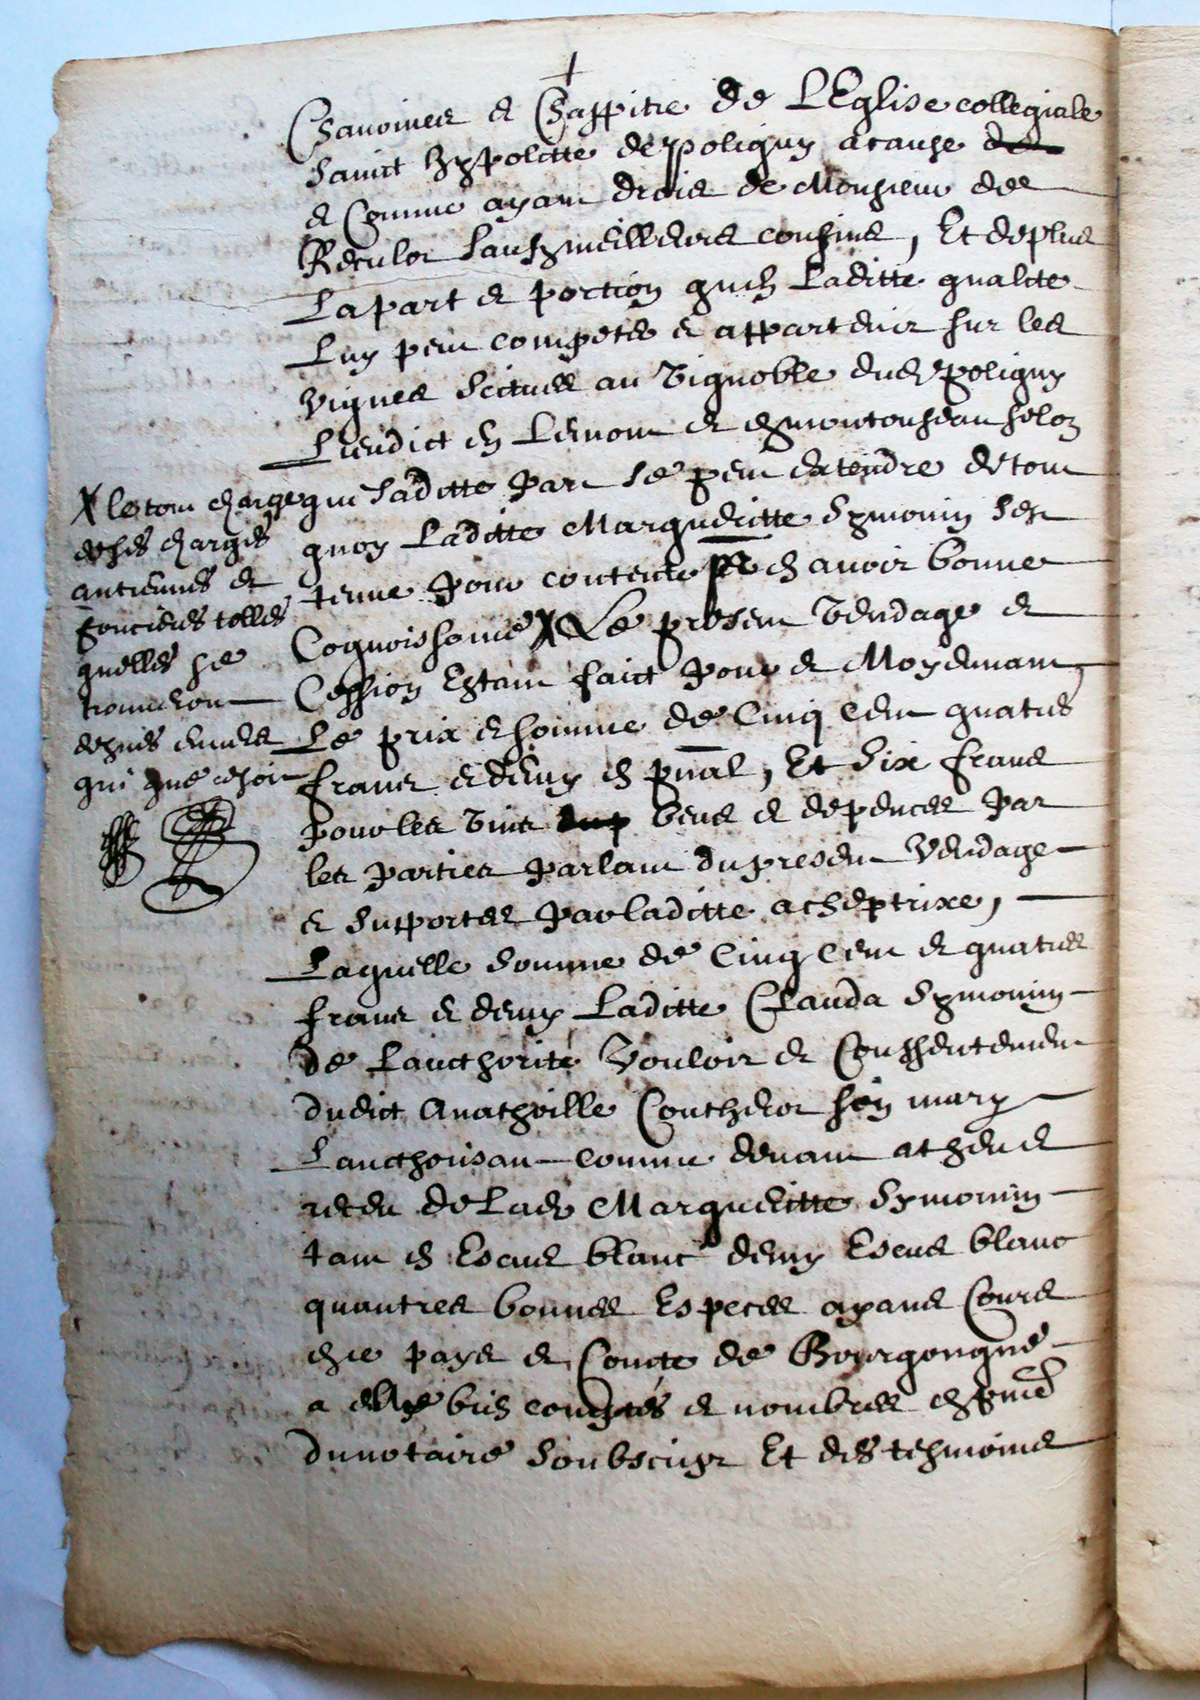 Chanoines et Chappitre de LEglise collegiale
Sainct hypolitte de poligny a cause
et Comme ayant droict de Monsieur de
cousins, Et de plus
La part et portion quen Laditte qualite
Luy peut competer et appartenir sur les
vignes scituees au vignoble dud poligny
Lieudict en et en selon
que saditte part se peut extendre de tout
quoy Laditte Margueritte Symonin sest
tenue pour contente pr en avoir bonne
Cognoissance X Le present vendage et
Cession Estant faict pour et Moyennant
Le prix et somme de Cinq Cent quatres
francs et demy en pnal, Et Six francs
pour les vins beus et depences par
les parties parlant du present vendage
et supportes par laditte acheptrixe,
Laquelle somme de Cinq Cent et quatres
francs et demy Laditte Clauda Symonin
de Laucthorité vouloir et Consentement
dudict Anathoille Coutherot son mary
Laucthorisant comme devant at heu et
receu de Lad Margueritte Symonin
tant en Escus blanc demy Escus blanc
quautres bonnes Especes ayans Cours
en ce pays et Comte de Bourgongne
a elle bien comptés et nombres en pnce
du notaire soubscript Et des tesmoins
X le tout charge
de ses charges
antiennes et
foncieres telles
quelles se
trouveront
depuis